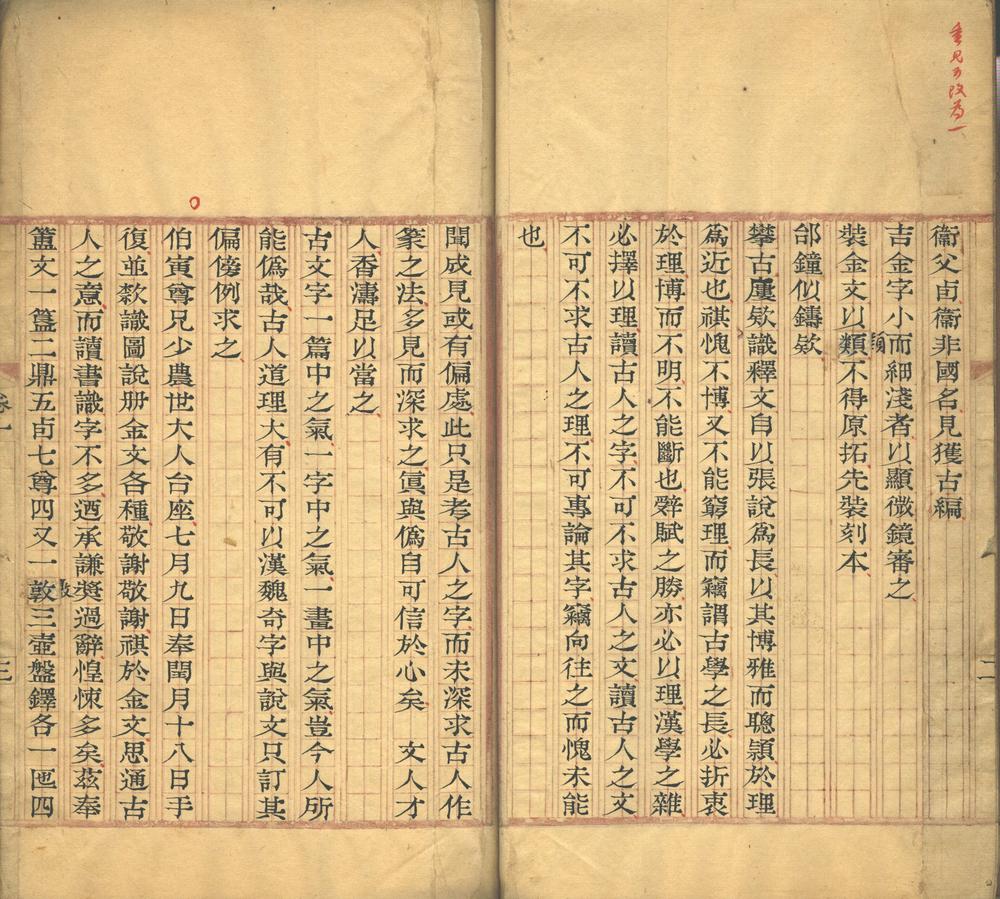 垂見可改為一
衞父卣衞非國名見獲古編
吉金字小而細淺者以顯微鏡審之
裝金文以類不得原拓先裝刻本
類
郃鐘似鑄欵
攀古廔欵識釋文自以張說爲長以其博雅而聰頴於理
爲近也祺愧不博又不能窮理而竊謂古學之長必折衷
於理博而不明不能斷也辤賦之勝亦必以理漢學之雜
必擇以理讀古人之字不可不求古人之文讀古人之文
不可不求古人之理不可專論其字竊向往之而愧未能
也
二
聞成見或有偏處此只是考古人之字而未深求古人作
篆之法多見而深求之眞與僞自可信於心矣 文人才
人香濤足以當之
古文字一篇中之氣一字中之氣一畫中之氣豈今人所
能僞哉古人道理大有不可以漢魏奇字與說文只訂其
偏傍例求之
伯寅尊兄少農世大人台座七月九日奉閏月十八日手
復並欵識圖說册金文各種敬謝敬謝祺於金文思通古
人之意而讀書識字不多迺承謙奬過辭惶悚多矣茲奉
簠文一簋二鼎五卣七尊四又一敦三壺盤鐸各一匜四
卷一
三